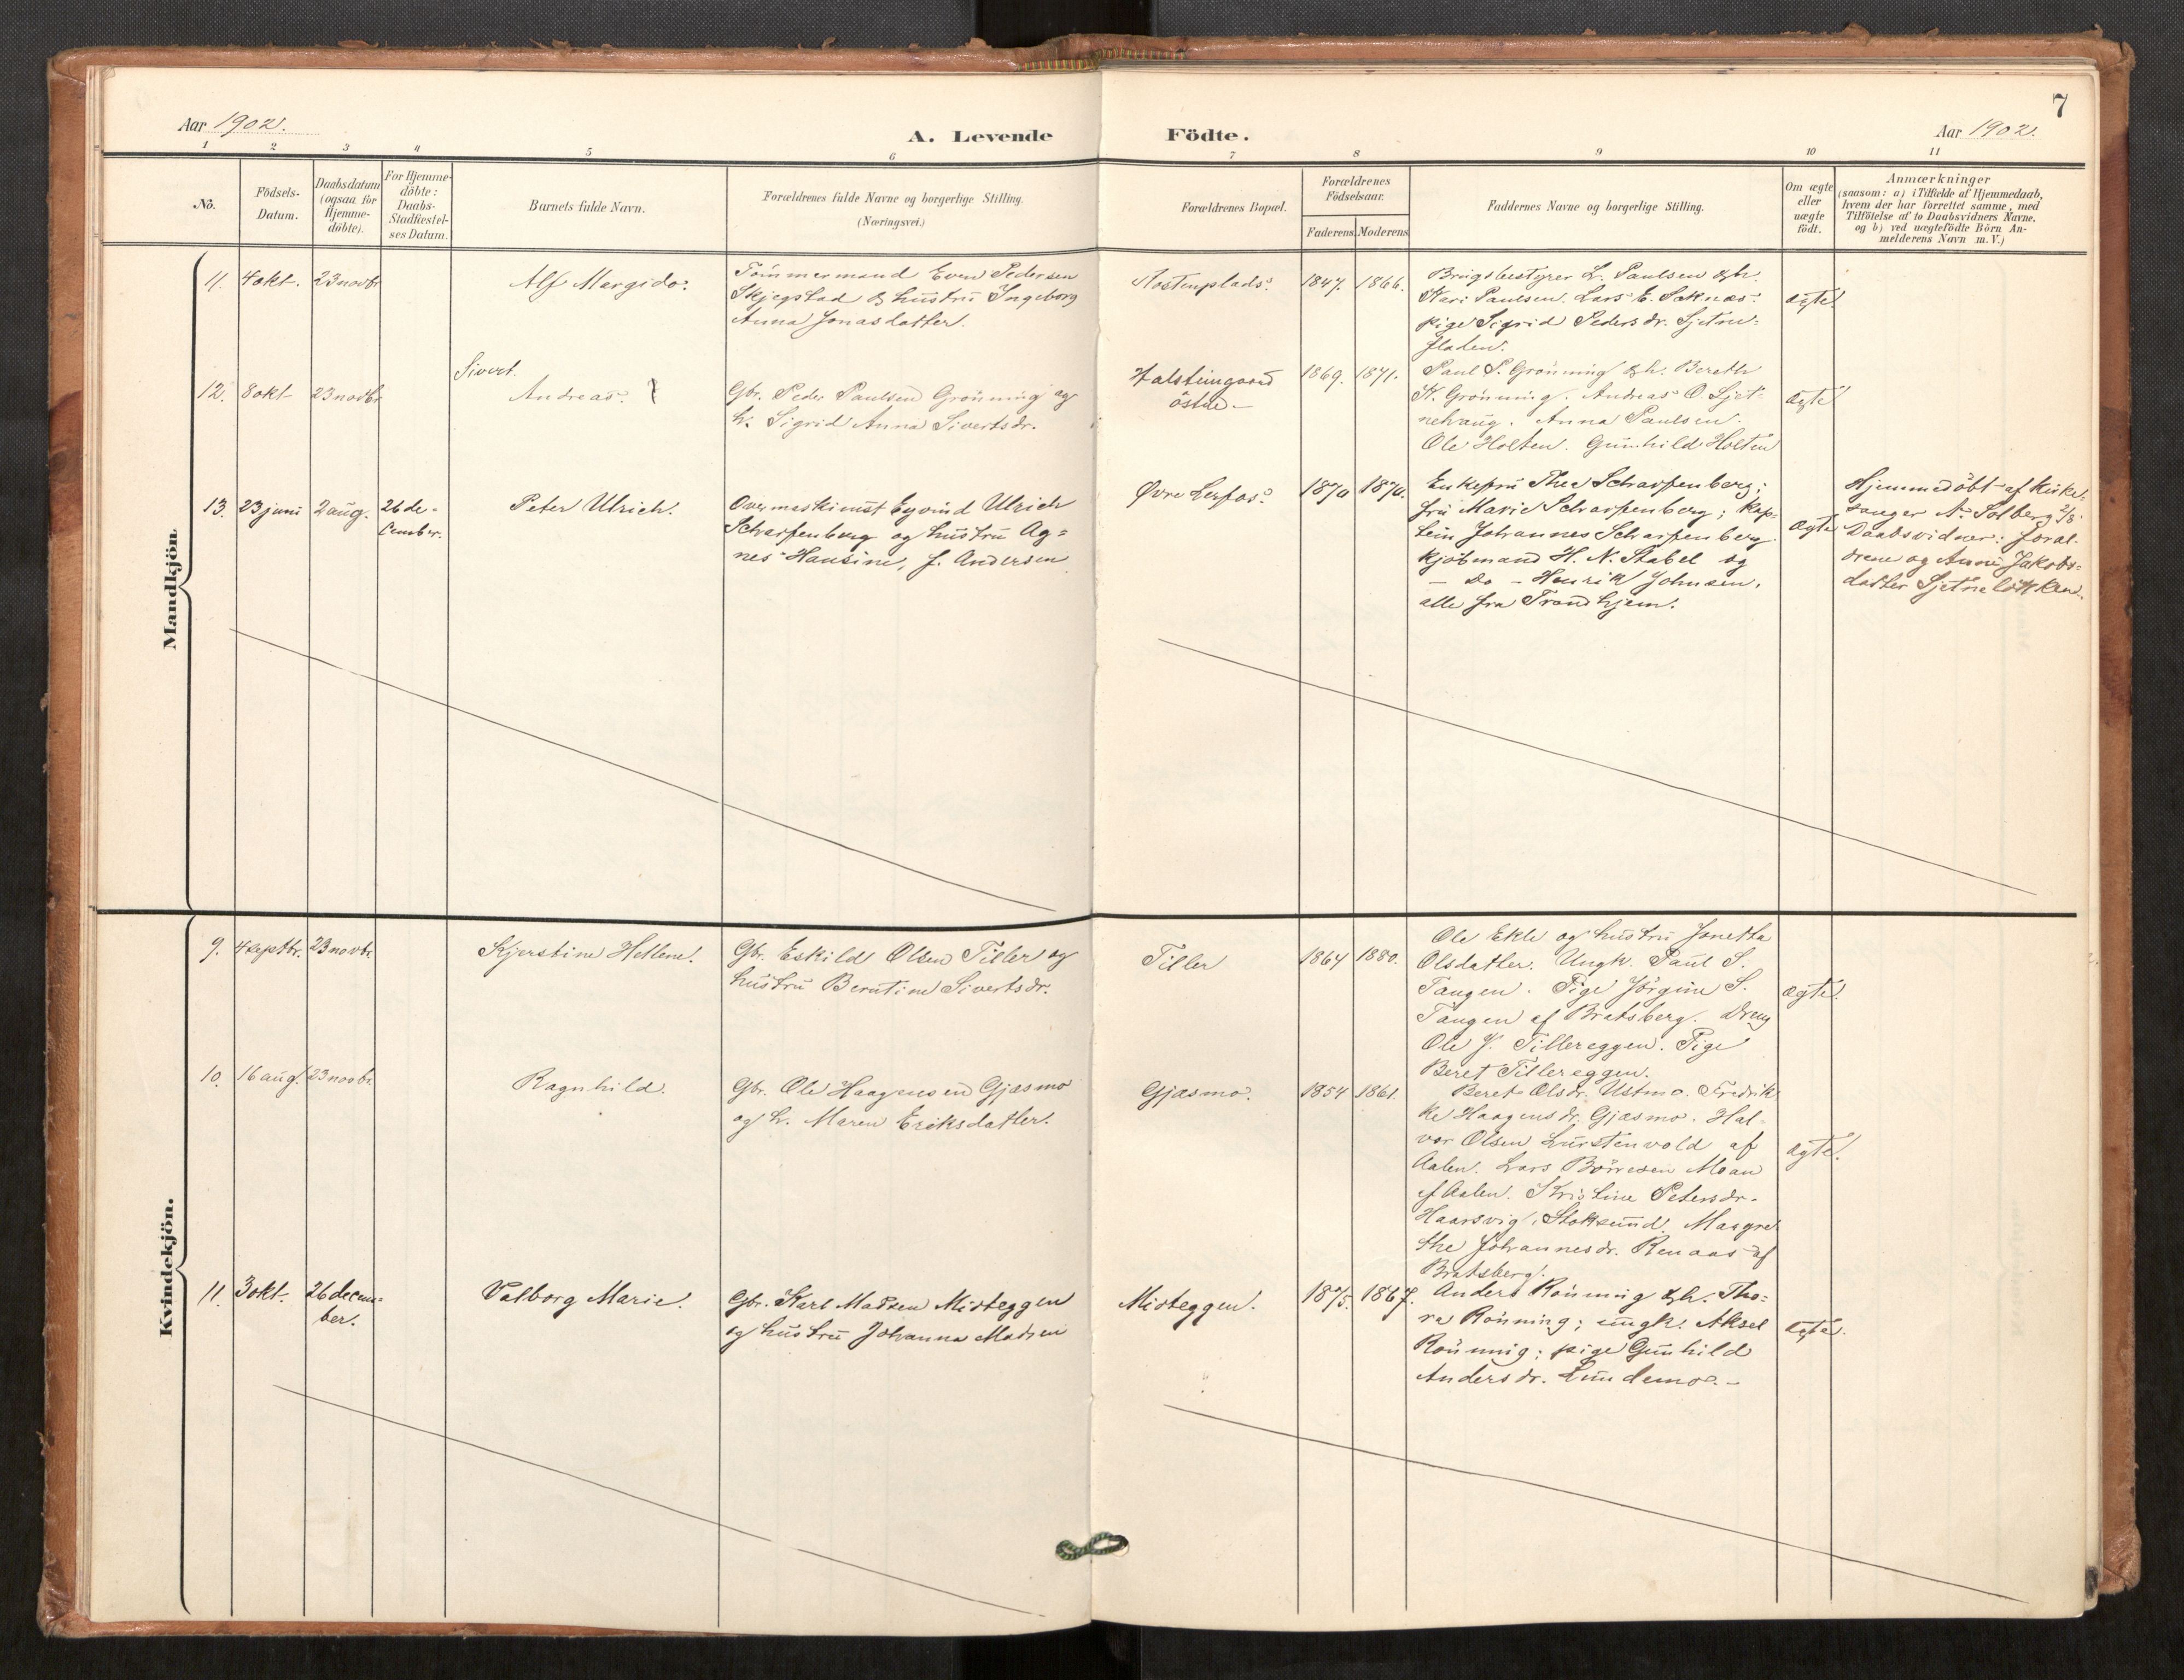 7
Aar 1902.
A. Levende Födte.
Aar 1902.
1 2 3 4 5 6 7 8 9 10 11
No.
Födsels-
Datum.
Daabsdatum
(ogsaa for
Hjemme-
döbte).
For Hjemme-
döbte:
Daabs-
Stadfæstel-
ses Datum.
Barnets fulde Navn.
Forældrenes fulde Navne og borgerlige Stilling.
(Næringsvei.)
Forældrenes Bopæl.
Forældrenes
Födselsaar.
Faderens. Moderens
Faddernes Navne og borgerlige Stilling.
Om ægte
eller
uægte
födt.
Anmærkninger
(saasom: a) i Tilfælde af Hjemmedaab,
hvem der har forrettet samme, med
Tilföielse af to Daabsvidners Navne.
og b) ved uægtefödte Börn An-
melderens Navn m. V.)
Mandkjön.
11. 4 okt. 23 novbr.
Alf Margido.
Tömmermand Even Pedersen
Skjegstad & hustru Ingeborg
Anna Jonasdatter.
1847. 1866.
Brugsbestyrer L. Paulsen & h.
Kari Paulsen. Lars E. Seknæs.
pige Sigrid Pedersdr. Sjetne-
fladen.
ægte.
12. 8 okt 23 novbr.
Sivert.
Andreas.
Gbr. Peder Paulsen Grönning og
h. Sigrid Anna Sivertsdr.
Halsteingaard
östre.
1869. 1871.
Paul P. Grönning & h. Bereth
K. Grönning. Andreas O. Sjet-
nehaug. Anna Paulsen.
Ole Holten. Gunhild Holten
ægte
13. 23 juni 2 aug. 26 de-
cember.
Peter Ulrich.
Overmaskinist Eyvind Ulrich
Scharffenberg og hustru Ag-
nes Hansine, f. Andersen
Øvre Lerfos.
1870 1870.
Enkefru Thea Scharffenberg;
fru Marie Scharffenberg; kap-
tein Johannes Scharffenberg.
kjöbmand H. N. Stabel og
- Do - Henrik Johnsen,
alle fra Trondhjem.
ægte
Hjemmedöbt af Kirke-
sanger A. Solberg 2/8
Daabsvidner: foræl-
drene og Anne Jakobs-
datter Sjetnelökken.
Kvindekjön.
9. 4 septbr. 23 novbr.
Kjerstine Hellene.
Gbr. Eskild Olsen Tiller og
hustru Berntine Sivertsdr.
Tiller
1864 1880.
Ole Ekle og hustru Jonetta
Olsdatter. Ungk. Paul S.
Tangen. Pige Jörgine S.
Tangen af Bratsberg. Dreng
Ole J. Tillereggen. Pige
Beret Tillereggen.
ægte.
10. 16 aug. 23 novbr.
Ragnhild.
Gbr. Ole Haagensen Gjæsmo
og h. Maren Eriksdatter.
Gjæsmo.
1854 1861.
Beret Olsdr. Ustmo. Fredrik-
ke Haagensdr. Gjæsmo. Hal-
vor Olsen Lurstenvold af
Aalen. Lars Börresen Moan
af Aalen. Kristine Petersdr.
Haarsvig, Stoksund. Maagre-
the Johannesdr. Renaas af
Bratsberg.
ægte.
11. 3 okt. 26 decem-
ber.
Valborg Marie.
Gbr. Karl Madsen Misteggen
og hustru Johanna Madsen
Misteggen.
1875. 1867.
Anders Rönning & h. Tho-
ra Rönning; ungk. Aksel
Rönning; pige Gunhild
Andersdr. Lundemo.-
ægte.